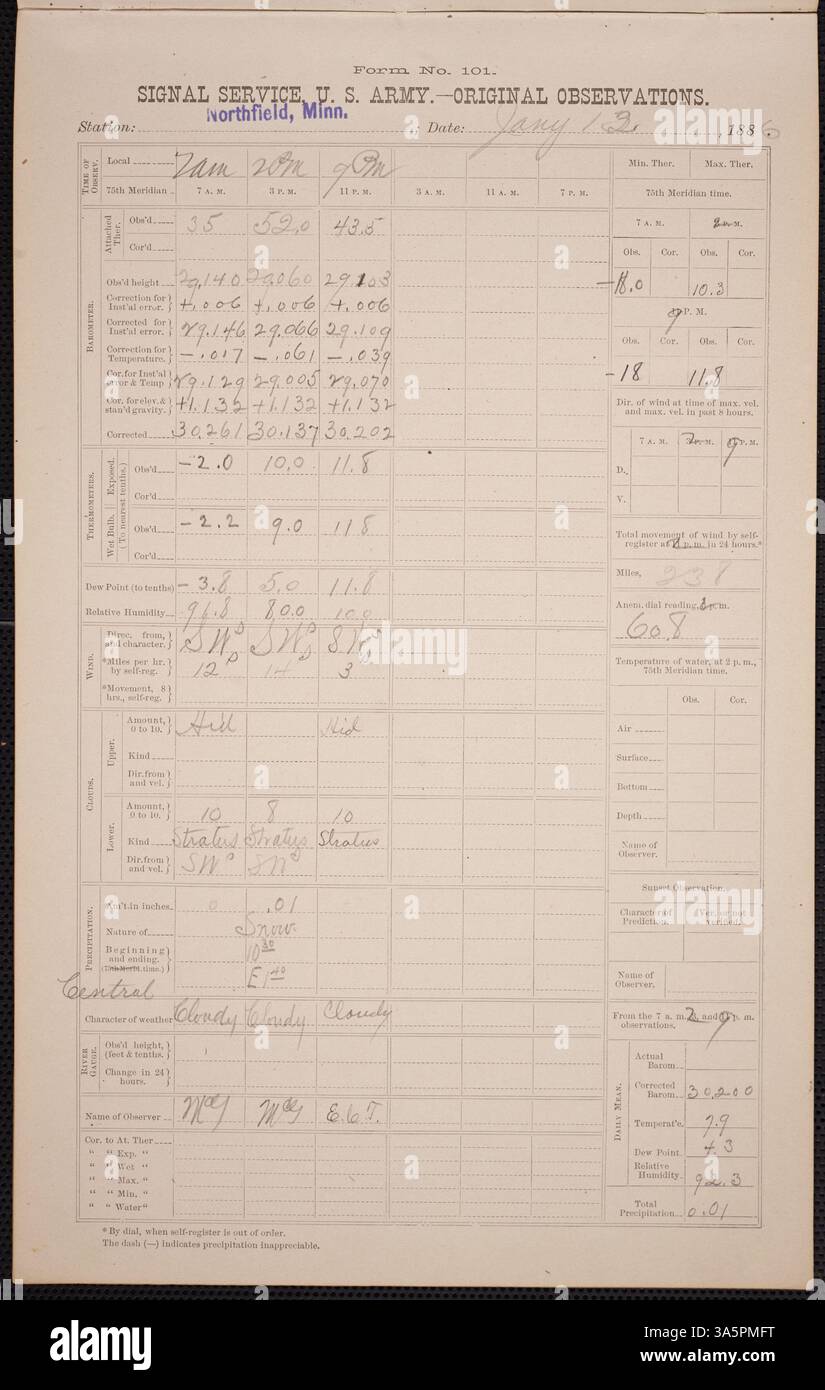 Form No. 101.
SIGNAL SERVICE, U. S. ARMY.—ORIGINAL OBSERVATIONS.
Northfield, Minn.
Station: Date: Jany 13, 1886.
TIME OF OBSERV. Local 7am 2 PM 9 PM
75th Meridian 7 A. M. 3 P. M. 11 P. M. 3 A. M. 11 A. M. 7 P. M.
Attached Ther. Obs'd 35 52.0 43.5
Cor'd
BAROMETER.
Obs'd height 29.140 29.060 29.103
Correction for Inst'al error. +.006 +.006 +.006
Corrected for Inst'al error. 29.146 29.066 29.109
Correction for Temperature. -.017 -.061 -.039
Cor. for Inst'al error & Temp 29.129 29.005 29.070
Cor. for elev. & stan'd gravity. +1.132 +1.132 +1.132
Corrected 30.261 30.137 30.202
THERMOMETERS. (To nearest tenths.)
Exposed. Obs'd -2.0 10.0 11.8
Cor'd
Wet Bulb. Obs'd -2.2 9.0 11 8
Cor'd
Dew Point (to tenths) -3.8 5.0 11.8
Relative Humidity 91.8 80.0 100
WIND.
Direc. from, and character. SW SW SW
*Miles per hr. by self-reg. 12 14 3
*Movement, 8 hrs., self-reg.
CLOUDS.
Upper. Amount, 0 to 10. Hid Hid
Kind
Dir. from and vel.
Lower. Amount, 0 to 10. 10 8 10
Kind Stratus Stratus Stratus
Dir. from and vel. SW SW
PRECIPITATION.
Am't. in inches. 0 .01
Nature of Snow
Beginning and ending. 10 30
(75th Merid. time.) E 1 40
Central
Character of weather Cloudy Cloudy Cloudy
RIVER GAUGE.
Obs'd height, (feet & tenths.)
Change in 24 hours.
Name of Observer McG McG E.C.T.
Cor. to At. Ther
" " Exp. "
" " Wet "
" " Max. "
" " Min. "
" " Water "
* By dial, when self-register is out of order.
The dash (—) indicates precipitation inappreciable.
Min. Ther. Max. Ther.
75th Meridian time.
7 A. M. 2 P. M.
Obs. Cor. Obs. Cor.
-18.0 10.3
9 P. M.
Obs. Cor. Obs. Cor.
-18 11.8
Dir. of wind at time of max. vel. and max. vel. in past 8 hours.
7 A. M. 2 P. M. 9 P. M.
D.
V.
Total movement of wind by self-register at p. m. in 24 hours.*
Miles, 238
Anem. dial reading, p. m.
60.8
Temperature of water, at 2 p. m., 75th Meridian time.
Obs. Cor.
Air
Surface
Bottom
Depth
Name of Observer.
Sunset Observation.
Character of Prediction. Ver. or not verified.
Name of Observer.
From the 7 a. m. 2, and 9 p. m. observations.
DAILY MEAN.
Actual Barom.
Corrected Barom. 30.200
Temperat'e. 7.9
Dew Point. 4.3
Relative Humidity. 92.3
Total Precipitation. 0.01
alamy
Image ID: 3A5PMFT
www.alamy.com